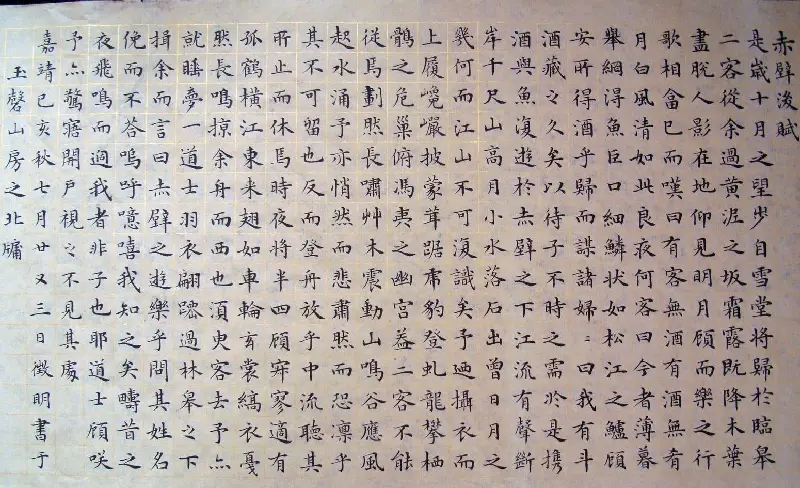 赤壁後賦
是歲十月之望步自雪堂將歸於臨皋
二客從余過黃泥之坂霜露既降木葉
盡脫人影在地仰見明月顧而樂之行
歌相畣已而嘆曰有客無酒有酒無肴
月白風清如此良夜何客曰今者薄暮
舉網得魚巨口細鱗狀如松江之鱸顧
安所得酒乎歸而謀諸婦〻曰我有斗
酒藏之久矣以待子不時之需於是携
酒與魚復遊於赤壁之下江流有聲斷
岸千尺山高月小水落石出曾日月之
幾何而江山不可復識矣予迺攝衣而
上履巉巖披蒙茸踞虎豹登虬龍攀栖
鶻之危巢俯馮夷之幽宮蓋二客不能
從焉劃然長嘯艸木震動山鳴谷應風
起水涌予亦悄然而悲肅然而恐凜乎
其不可留也反而登舟放乎中流聽其
所止而休焉時夜將半四顧寂寥適有
孤鶴橫江東来翅如車輪玄裳縞衣戛
然長鳴掠余舟而西也須臾客去予亦
就睡夢一道士羽衣翩躚過林皋之下
揖余而言曰赤壁之遊樂乎問其姓名
俛而不答嗚呼噫嘻我知之矣疇昔之
夜飛鳴而過我者非子也耶道士顧咲
予亦驚寤開戶視之不見其處
嘉靖己亥秋七月廿又三日徵明書于
玉磬山房之北牖